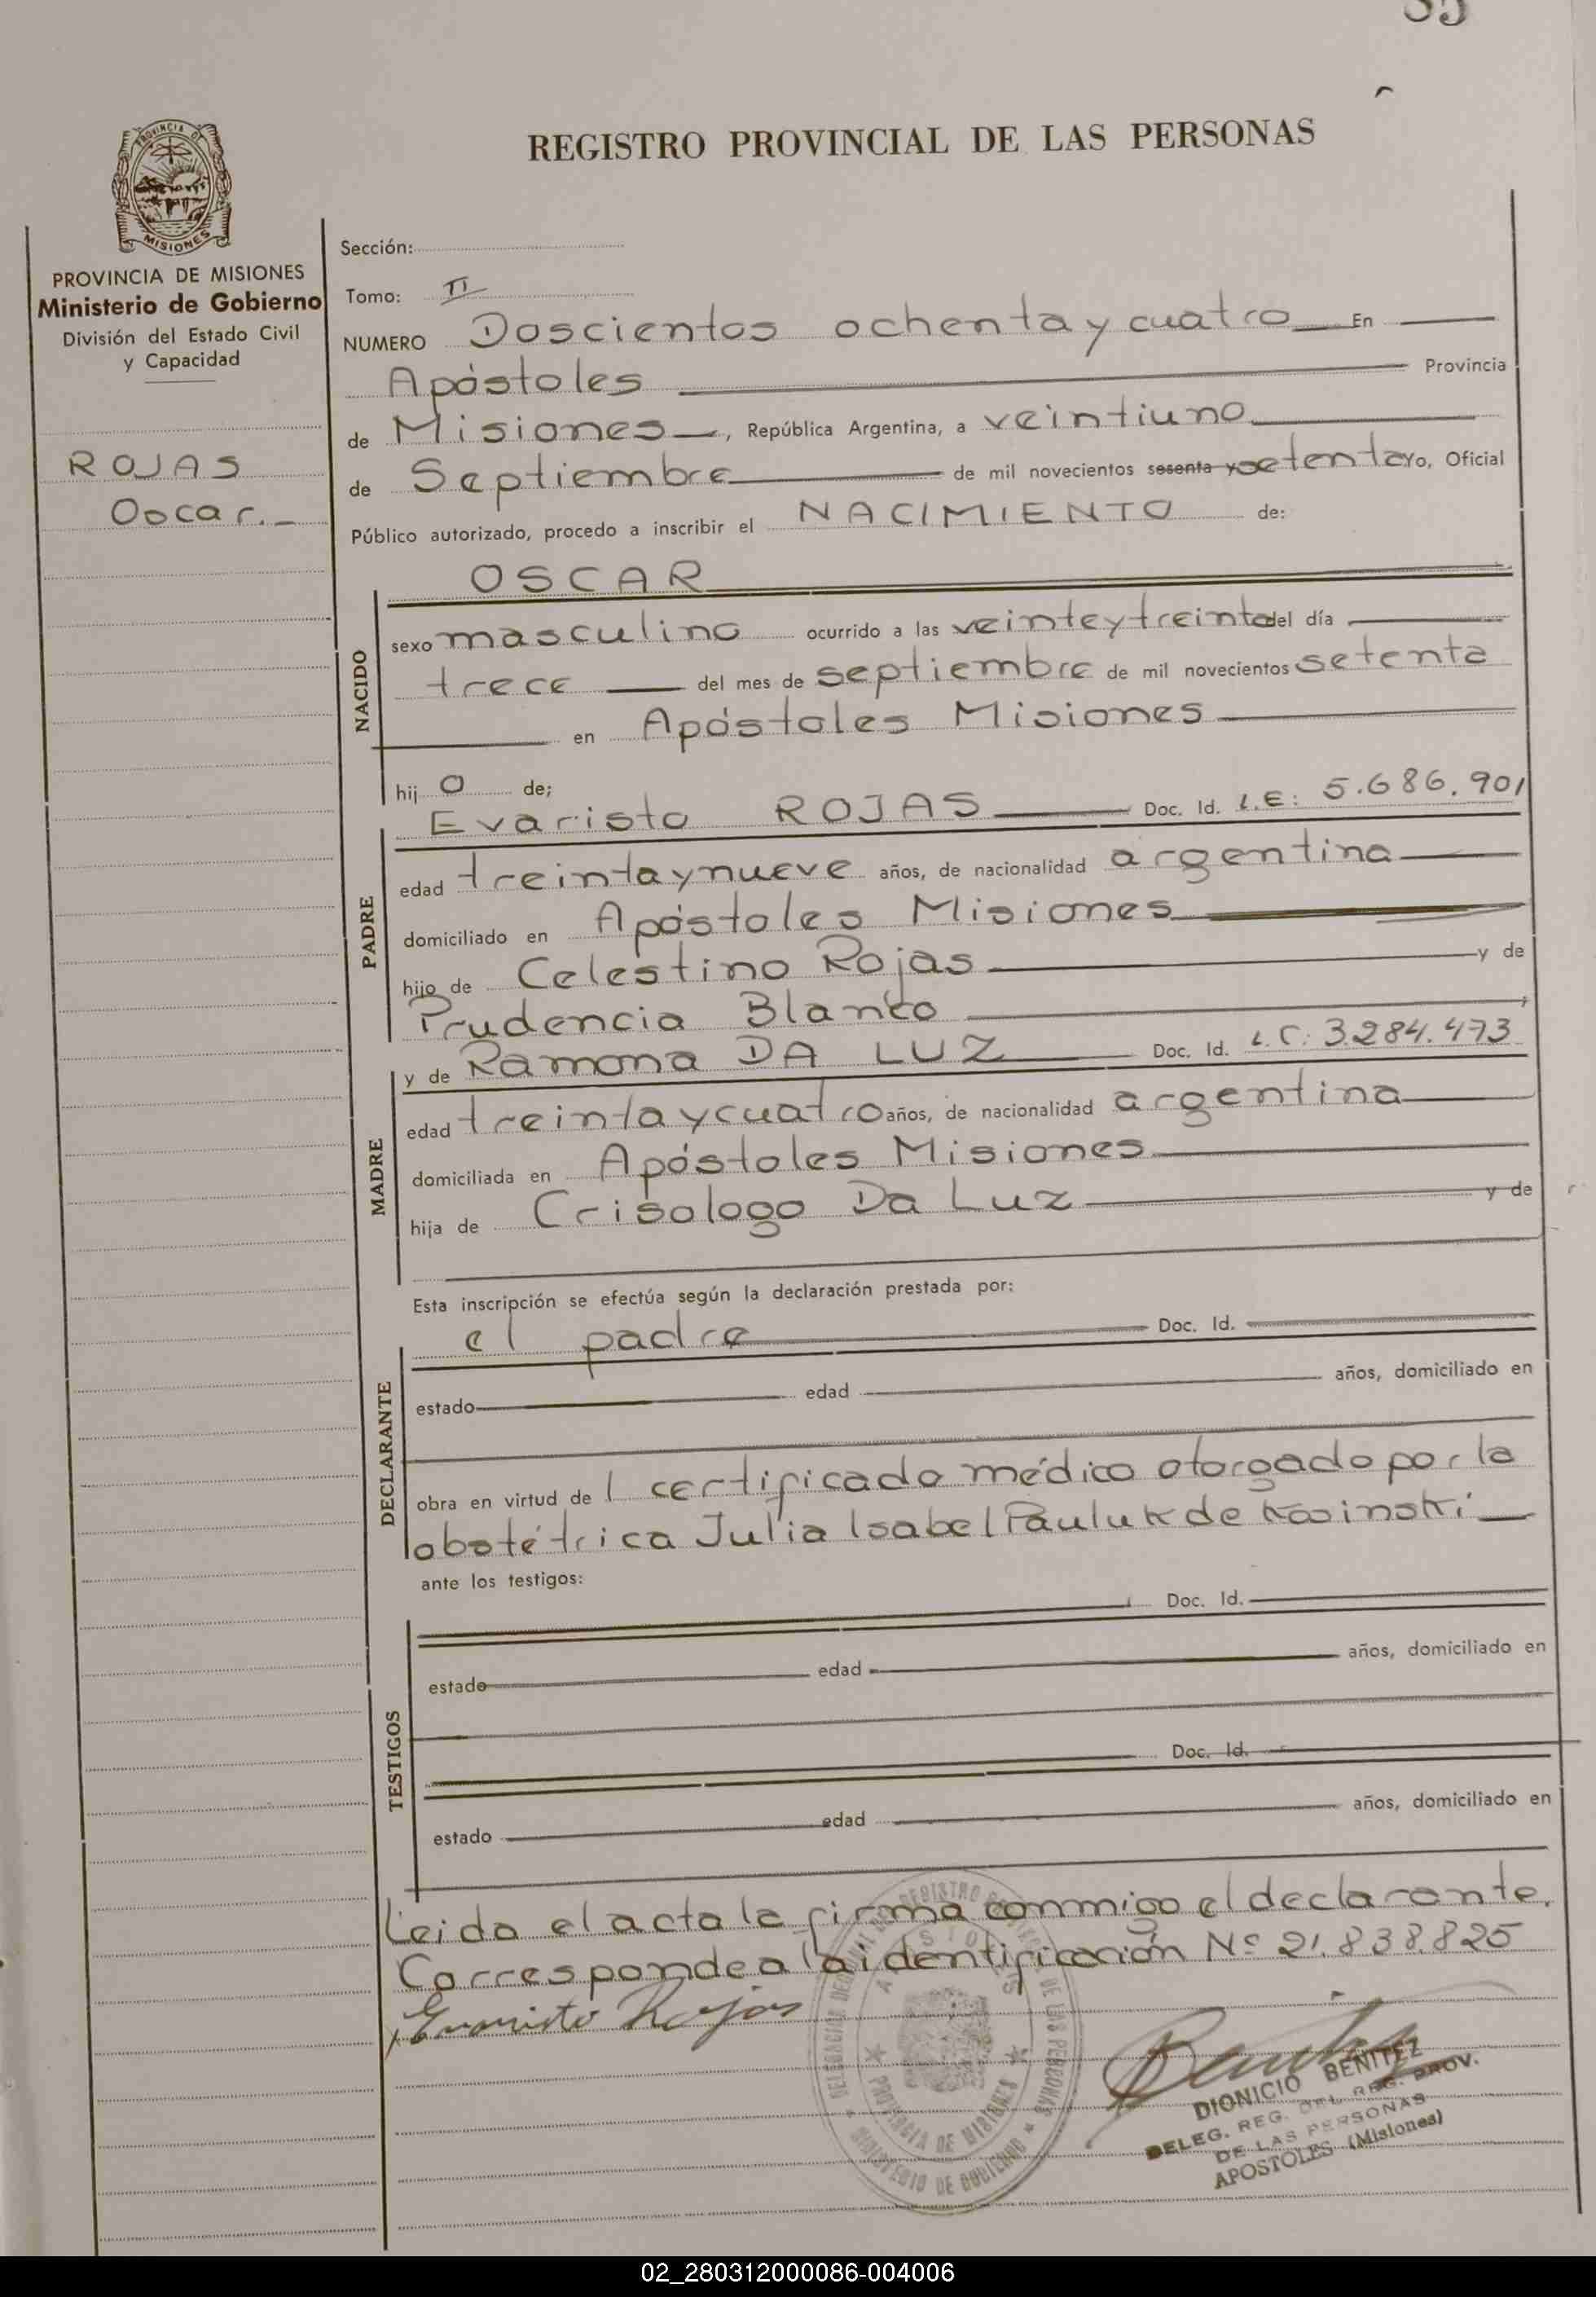 REGISTRO PROVINCIAL DE LAS PERSONAS
PROVINCIA DE
MISIONES
PROVINCIA DE MISIONES
Ministerio de Gobierno
División del Estado Civil
y Capacidad
ROJAS
Oscar.-
Sección:
Tomo: II
NUMERO Doscientos ochenta y cuatro En
Apóstoles Provincia
de Misiones, República Argentina, a veintiuno
de Septiembre de mil novecientos sesenta y setenta Yo, Oficial
Público autorizado, procedo a inscribir el NACIMIENTO de:
NACIDO
OSCAR
sexo masculino ocurrido a las veinte y treinta del día
trece del mes de septiembre de mil novecientos setenta
en Apóstoles Misiones
hijo de;
PADRE
Evaristo ROJAS Doc. Id. L.E: 5.686.901
edad treinta y nueve años, de nacionalidad argentina
domiciliado en Apóstoles Misiones
hijo de Celestino Rojas y de
Prudencia Blanco
MADRE
y de Ramona DA LUZ Doc. Id. L.C: 3.284.473
edad treinta y cuatro años, de nacionalidad argentina
domiciliada en Apóstoles Misiones
hija de Crisologo Da Luz y de
Esta inscripción se efectúa según la declaración prestada por:
DECLARANTE
el padre Doc. Id.
estado edad años, domiciliado en
obra en virtud de l certificado médico otorgado por la
obstétrica Julia Isabel Pauluk de Kosinski
ante los testigos:
TESTIGOS
Doc. Id.
estado edad años, domiciliado en
Doc. Id.
estado edad años, domiciliado en
Leida el acta la firma conmigo el declarante.
Corresponde a la identificación Nº 21.838.825
Evaristo Rojas
DIONICIO BENITEZ
DELEG. REG. DEL REG. PROV.
DE LAS PERSONAS
APOSTOLES (Misiones)
PROVINCIA DE MISIONES
MINISTERIO DE GOBIERNO
02_280312000086-004006